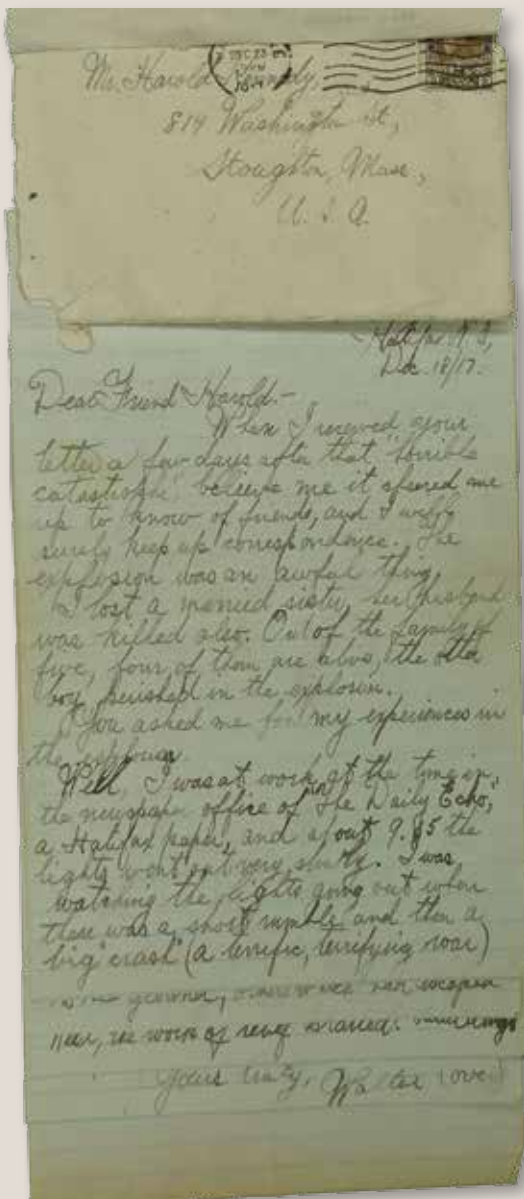 DEC 23
Mr. Harold Kennedy,
814 Washington St,
Stoughton, Mass,
U. S. A.
Halifax N.S,
Dec. 18/17.
Dear Friend Harold.-
When I received your
letter a few days after that "terrible
catastrophe" believe me it cheered me
up to know of friends, and I will
surely keep up correspondence. The
explosion was an awful thing.
I lost a married sister, her husband
was killed also. Out of the family of
five, four of them are alive, the other
boy perished in the explosion.
You asked me for my experiences in
the explosion.
Well, I was at work at the time in
the newspaper office of "The Daily Echo,"
a Halifax paper, and about 9.05 the
lights went out very slowly. I was
watching the lights going out when
there was a short rumble and then a
big "crash" (a terrific, terrifying roar)
the work of
Yours truly, Walter (over)